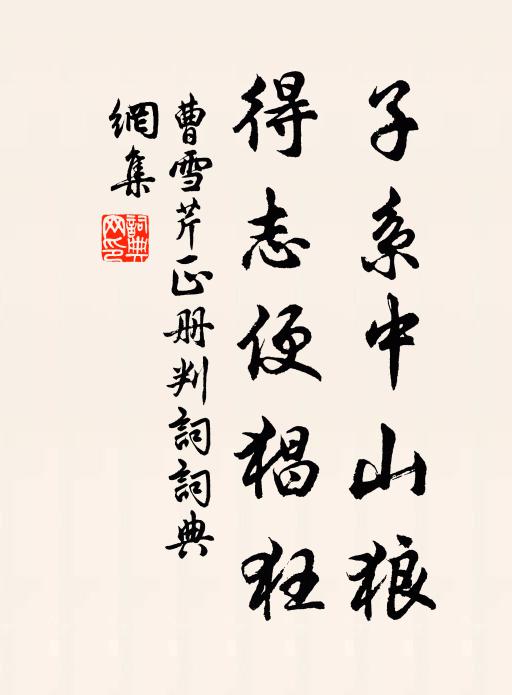 子系中山狼
得志便猖狂
曹雪芹正册判詞詞典
網集
詞典
网印